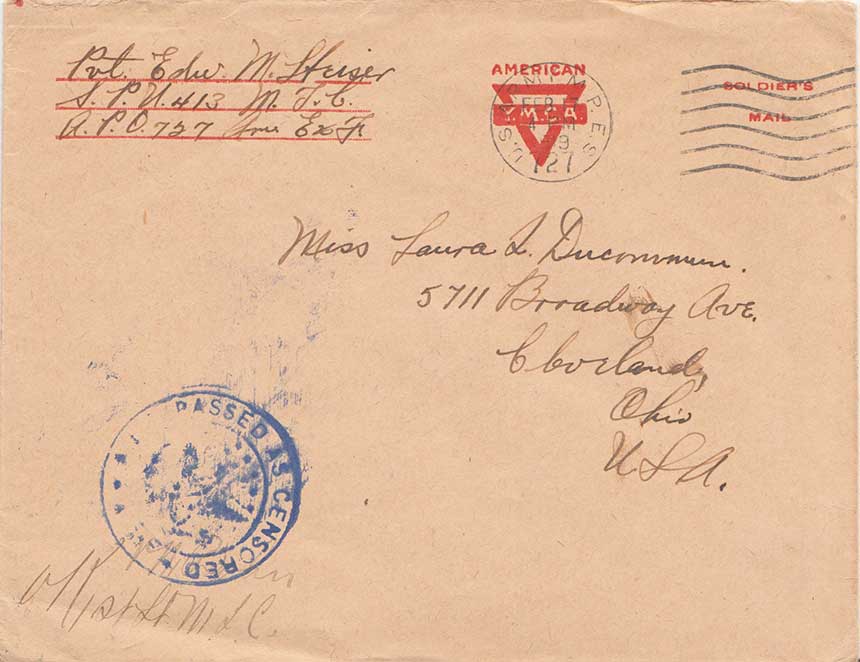 Pvt. Edw. M. Heiser
S. P. U. 413 M. T. C.
A. P. O. 727 Ex F.
AMERICAN
Y.M.C.A.
U.S.
FEB
727
SOLDIER'S
MAIL
Miss Laura L. Ducommun.
5711 Broadway Ave.
Cleveland,
Ohio
U.S.A.
PASSED AS CENSORED
OK
1st Lt M T C.